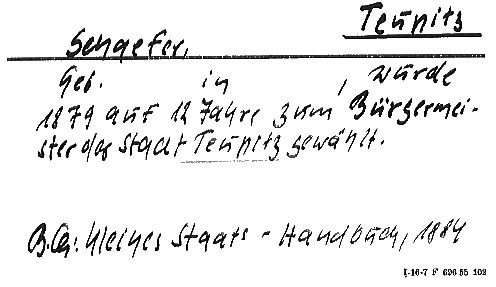 Teupitz
Schaefer,
Geb. in , wurde
1879 auf 12 Jahre zum Bürgermei-
ster der Stadt Teupitz gewählt.
Kleines Staats-Handbuch, 1884
I-16-7 F 696 55 102